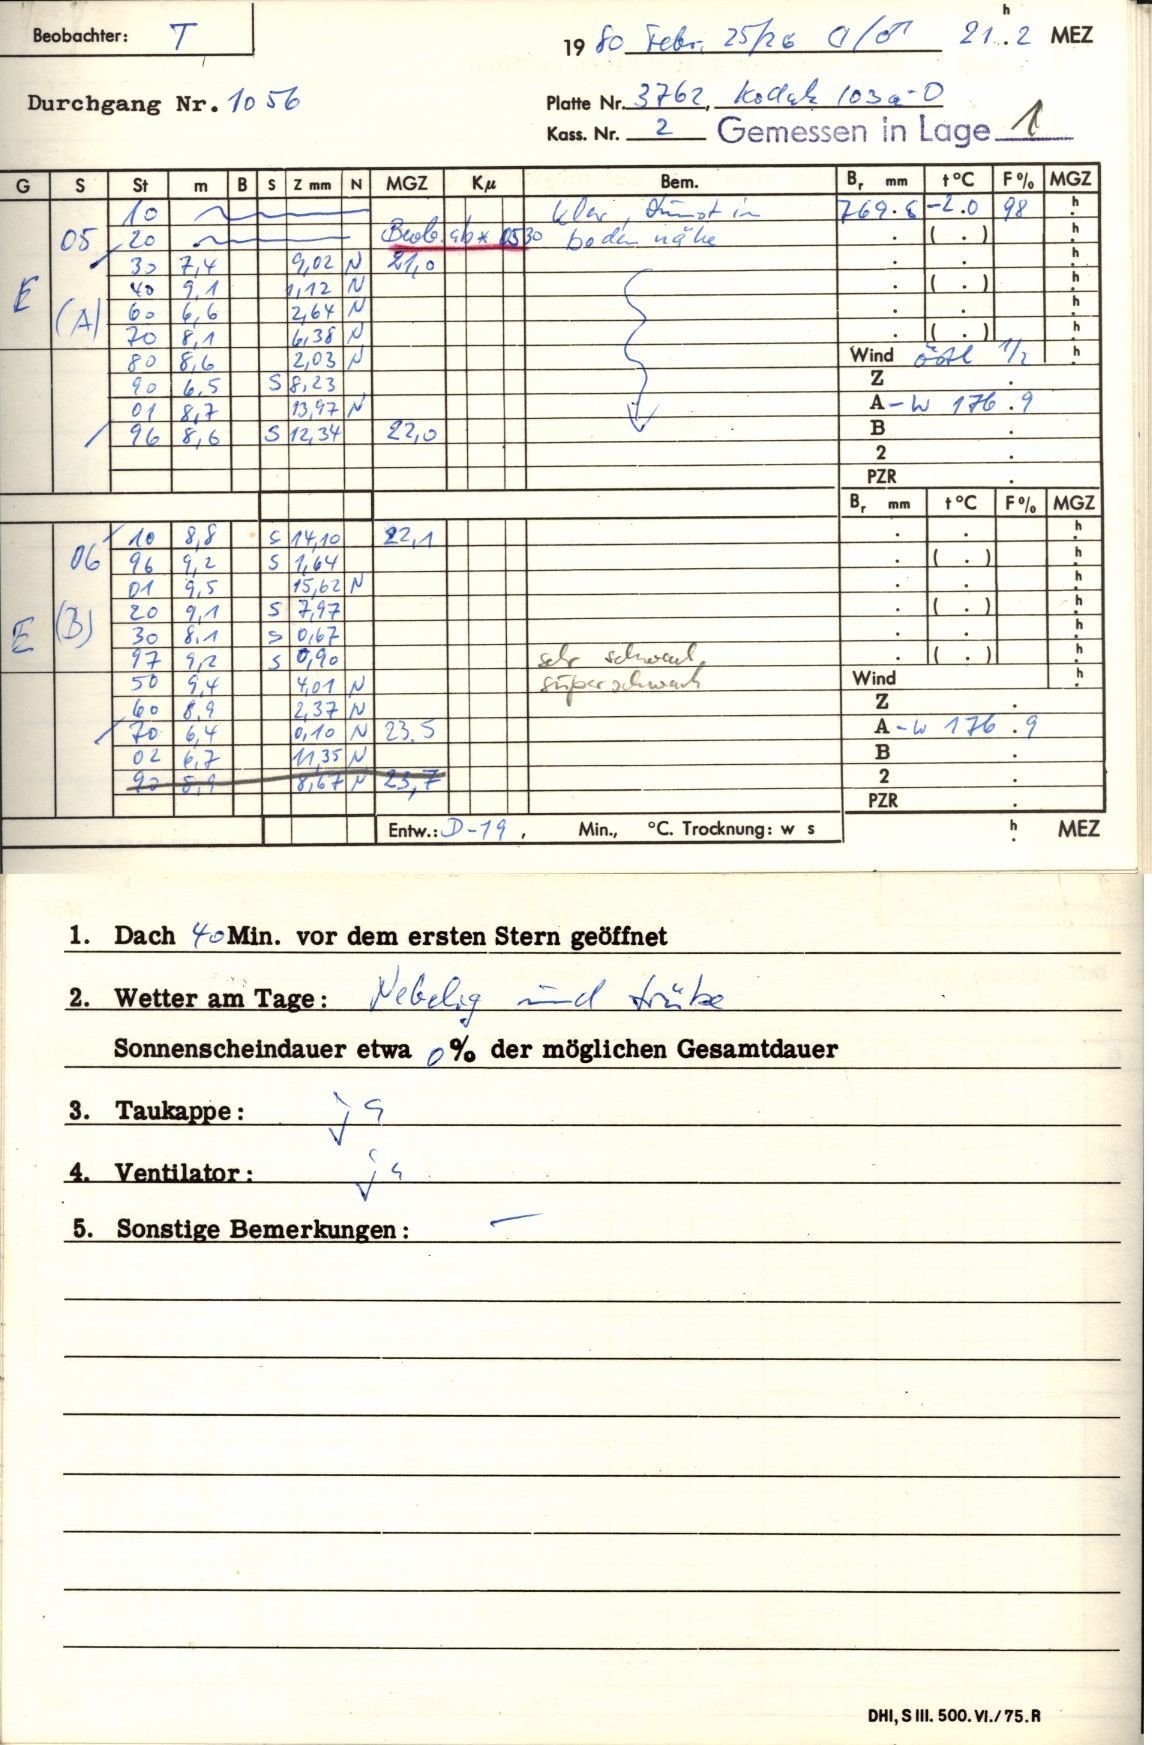 Beobachter: T
1980 Febr. 25/26 ☾/♂ 21.2 h MEZ
Durchgang Nr. 1056
Platte Nr. 3762, Kodak 103a-O
Kass. Nr. 2 Gemessen in Lage 1
G S St m B S Z mm N MGZ Kμ Bem. Br mm t°C F% MGZ
10 klar, Dunst in 769.6 -2.0 98 h
05 20 Beob. ab * 0530 bodennähe . ( . ) h
30 7,4 9,02 N 21,0 . . h
E 40 9,1 1,12 N . ( . ) h
(A) 60 6,6 2,64 N . . h
70 8,1 6,38 N . ( . ) h
80 8,6 2,03 N Wind östl 1/2 h
90 6,5 S 8,23 Z .
01 8,7 13,97 N A -W 176.9
96 8,6 S 12,34 22,0 B .
2 .
PZR .
Br mm t°C F% MGZ
10 8,8 S 14,10 22,1 . . h
06 96 9,2 S 1,64 . ( . ) h
01 9,5 15,62 N . . h
(B) 20 9,1 S 7,97 . ( . ) h
E 30 8,1 S 0,67 . . h
97 9,2 S 0,90 sehr schwach, . ( . ) h
50 9,4 4,01 N superschwach Wind h
60 8,9 2,37 N Z .
70 6,4 0,10 N 23.5 A -W 176.9
02 6,7 11,35 N B .
90 8,9 8,67 N 23,7 2 .
PZR .
Entw.: D-19, Min., °C. Trocknung: w s h MEZ
1. Dach 40 Min. vor dem ersten Stern geöffnet
2. Wetter am Tage: Nebelig und trübe
Sonnenscheindauer etwa 0% der möglichen Gesamtdauer
3. Taukappe: ja
4. Ventilator: ja
5. Sonstige Bemerkungen: —
DHI, S III. 500. VI./75. R